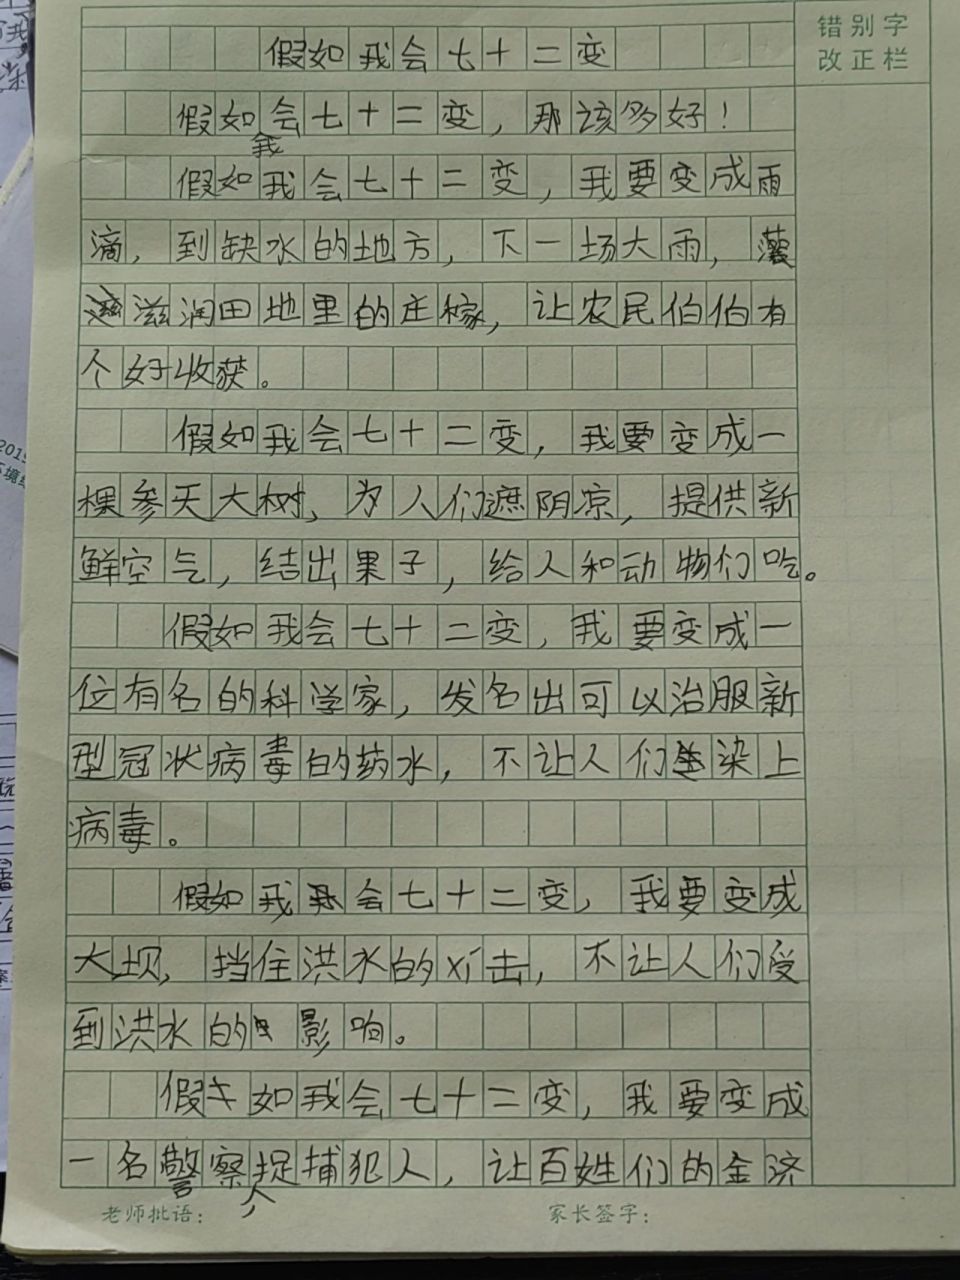 错别字
改正栏
假如我会七十二变
假如我会七十二变，那该多好！
假如我会七十二变，我要变成雨
滴，到缺水的地方，下一场大雨，
滋润田地里的庄稼，让农民伯伯有
个好收获。
假如我会七十二变，我要变成一
棵参天大树，为人们遮阴凉，提供新
鲜空气，结出果子，给人和动物们吃。
假如我会七十二变，我要变成一
位有名的科学家，发名出可以治服新
型冠状病毒的药水，不让人们染上
病毒。
假如我会七十二变，我要变成
大坝，挡住洪水的击，不让人们受
到洪水的影响。
假如我会七十二变，我要变成
一名警察捉捕犯人，让百姓们的金济
老师批语：
家长签字：